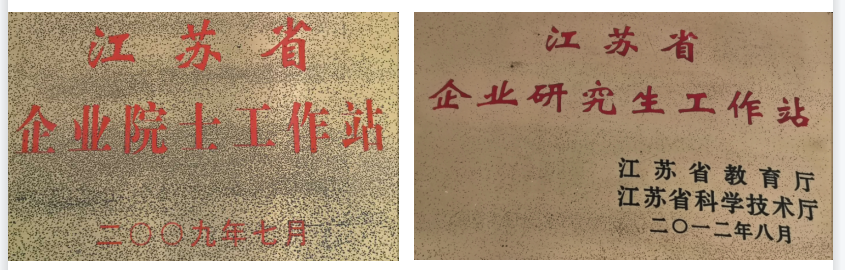 江苏省
企业院士工作站
二〇〇九年七月
江苏省
企业研究生工作站
江苏省教育厅
江苏省科学技术厅
二〇一二年八月